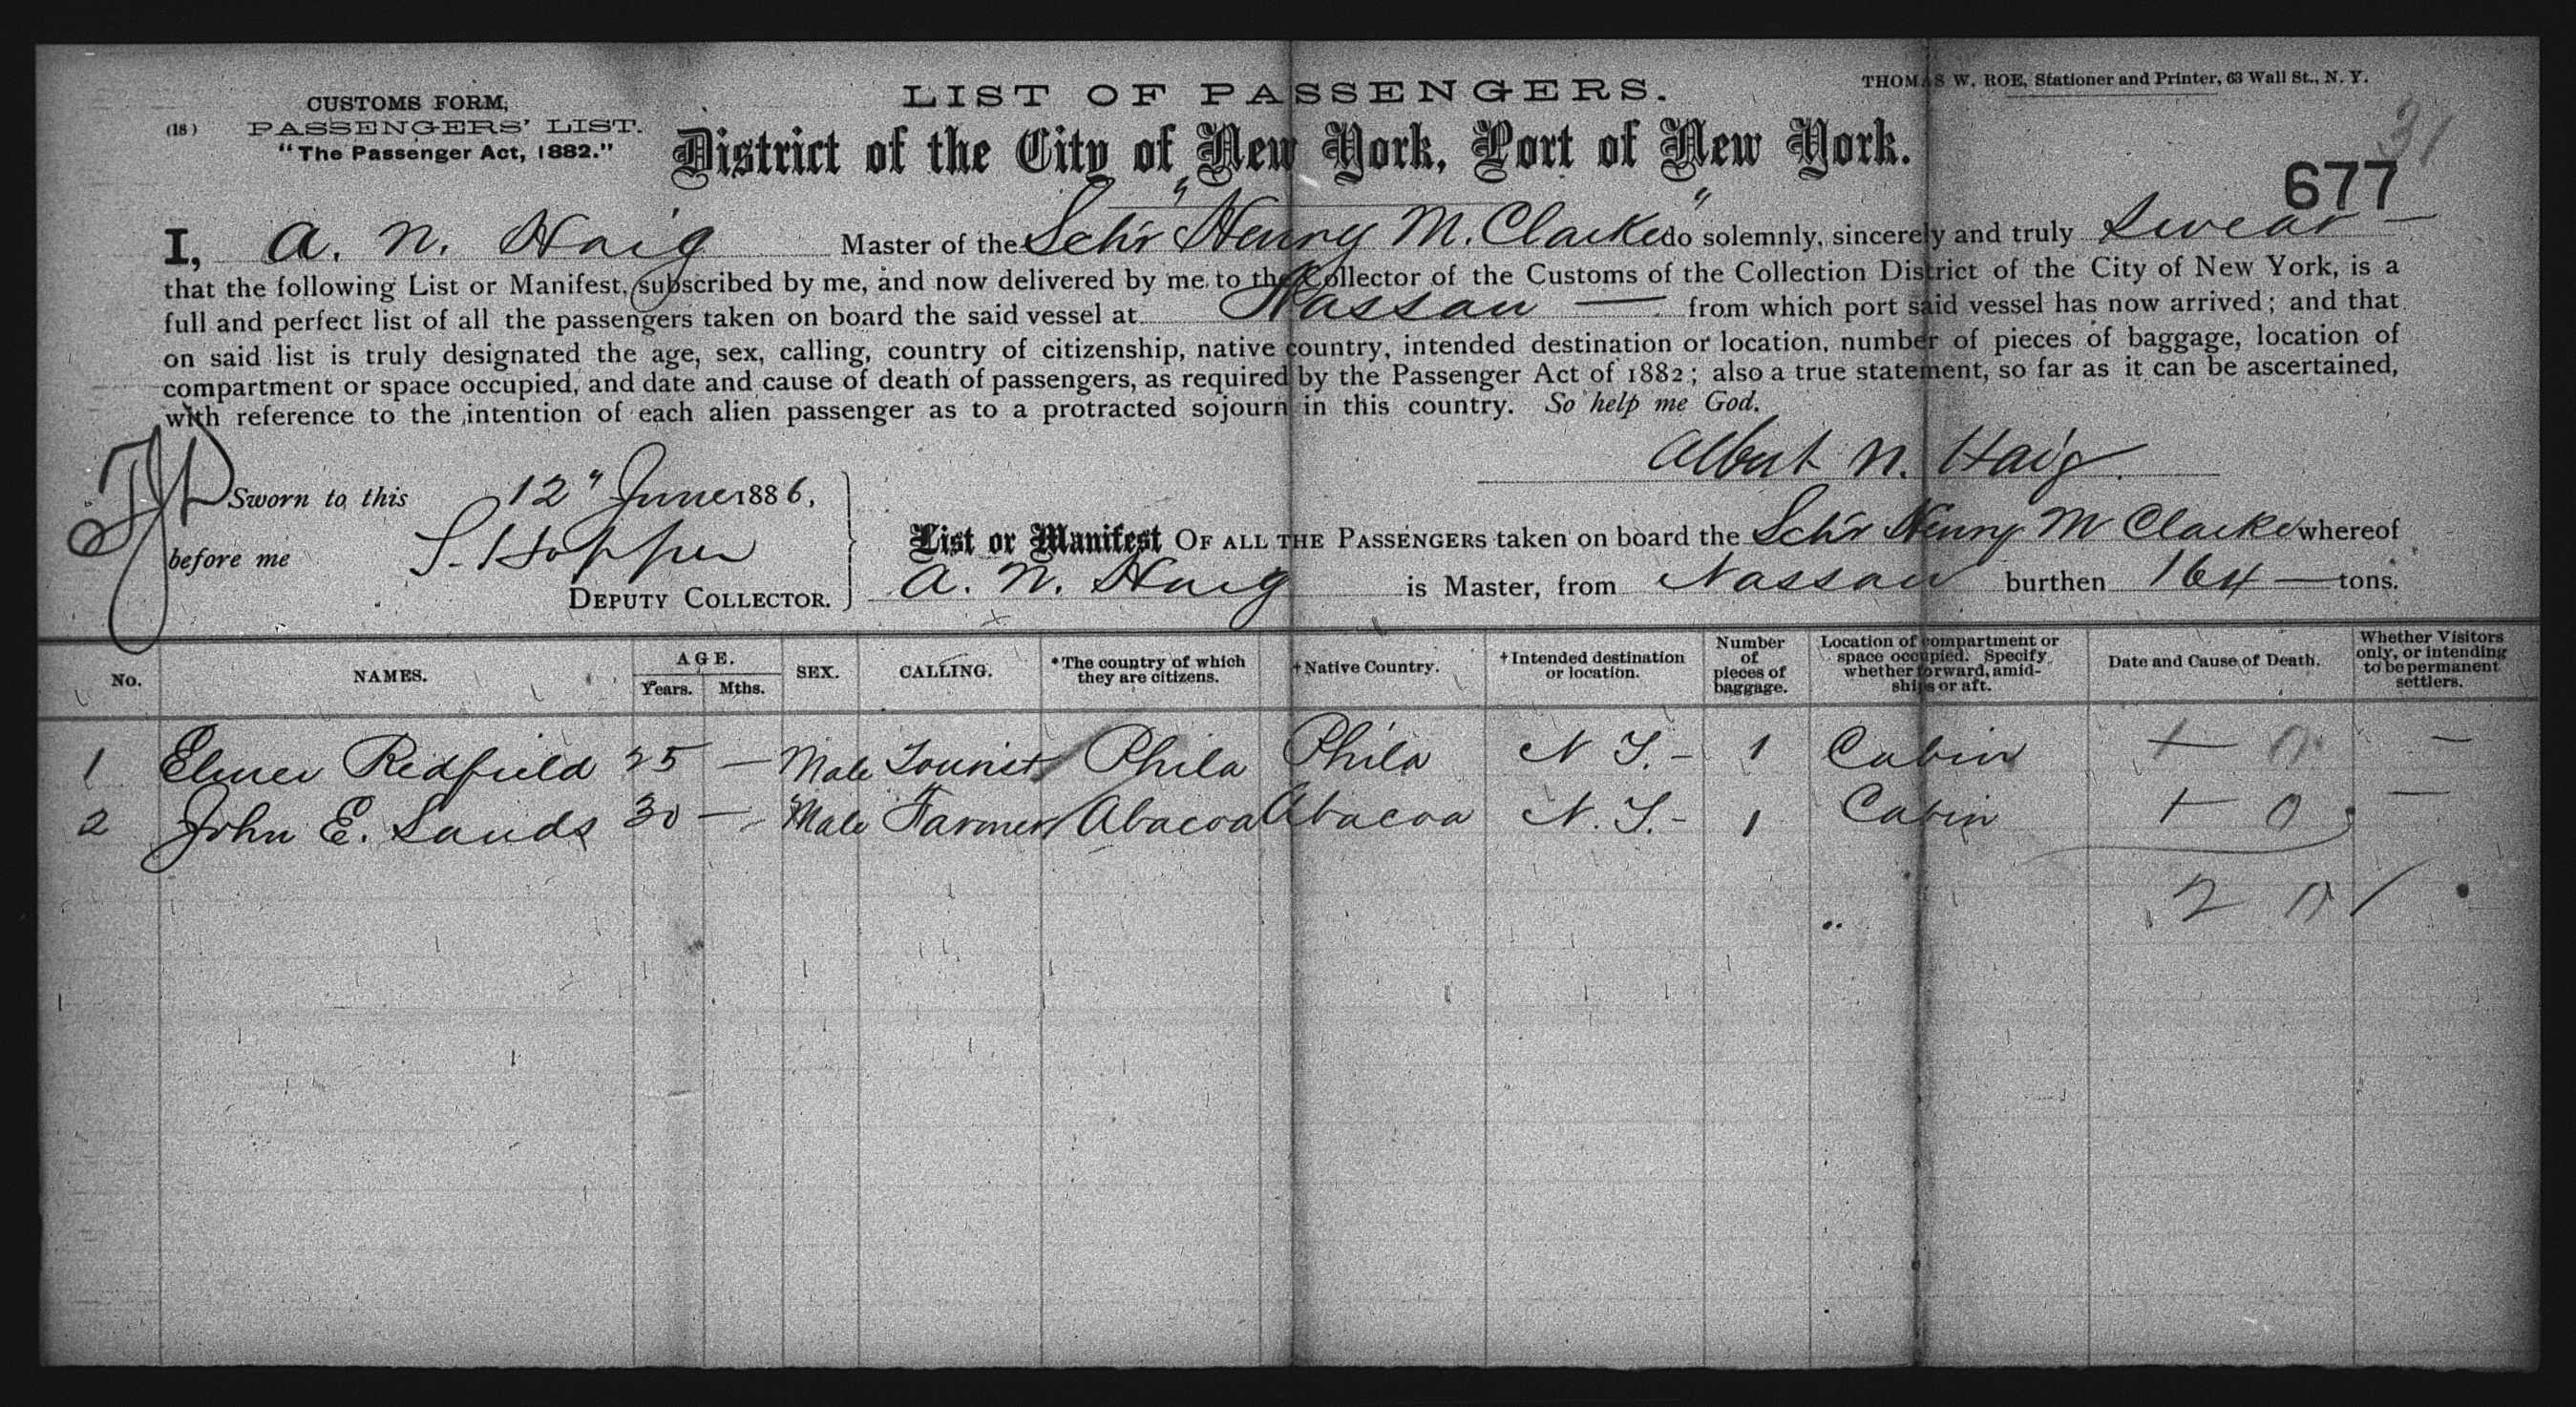 CUSTOMS FORM,
(18) PASSENGERS' LIST.
"The Passenger Act, 1882."
LIST OF PASSENGERS.
THOMAS W. ROE, Stationer and Printer, 63 Wall St., N. Y.
31
District of the City of New York, Port of New York.
677
I, A. N. Haig Master of the Schr "Henry M. Clarke" do solemnly, sincerely and truly swear —
that the following List or Manifest, subscribed by me, and now delivered by me to the Collector of the Customs of the Collection District of the City of New York, is a
full and perfect list of all the passengers taken on board the said vessel at Nassau — from which port said vessel has now arrived; and that
on said list is truly designated the age, sex, calling, country of citizenship, native country, intended destination or location, number of pieces of baggage, location of
compartment or space occupied, and date and cause of death of passengers, as required by the Passenger Act of 1882; also a true statement, so far as it can be ascertained,
with reference to the intention of each alien passenger as to a protracted sojourn in this country. So help me God.
Albert N. Haig.
Sworn to this 12" June 1886,
before me S. Hopper
DEPUTY COLLECTOR.
List or Manifest OF ALL THE PASSENGERS taken on board the Schr Henry M Clarke whereof
A. N. Haig is Master, from Nassau burthen 164 — tons.
No. NAMES. AGE. Years. Mths. SEX. CALLING. *The country of which they are citizens. †Native Country. †Intended destination or location. Number of pieces of baggage. Location of compartment or space occupied. Specify whether forward, amidships or aft. Date and Cause of Death. Whether Visitors only, or intending to be permanent settlers.
1 Elmer Redfield 25 — Male Tourist Phila Phila N Y.- 1 Cabin + 0 —
2 John E. Sands 30 — Male Farmer Abacoa Abacoa N. Y.- 1 Cabin + 0 —
2 0 /